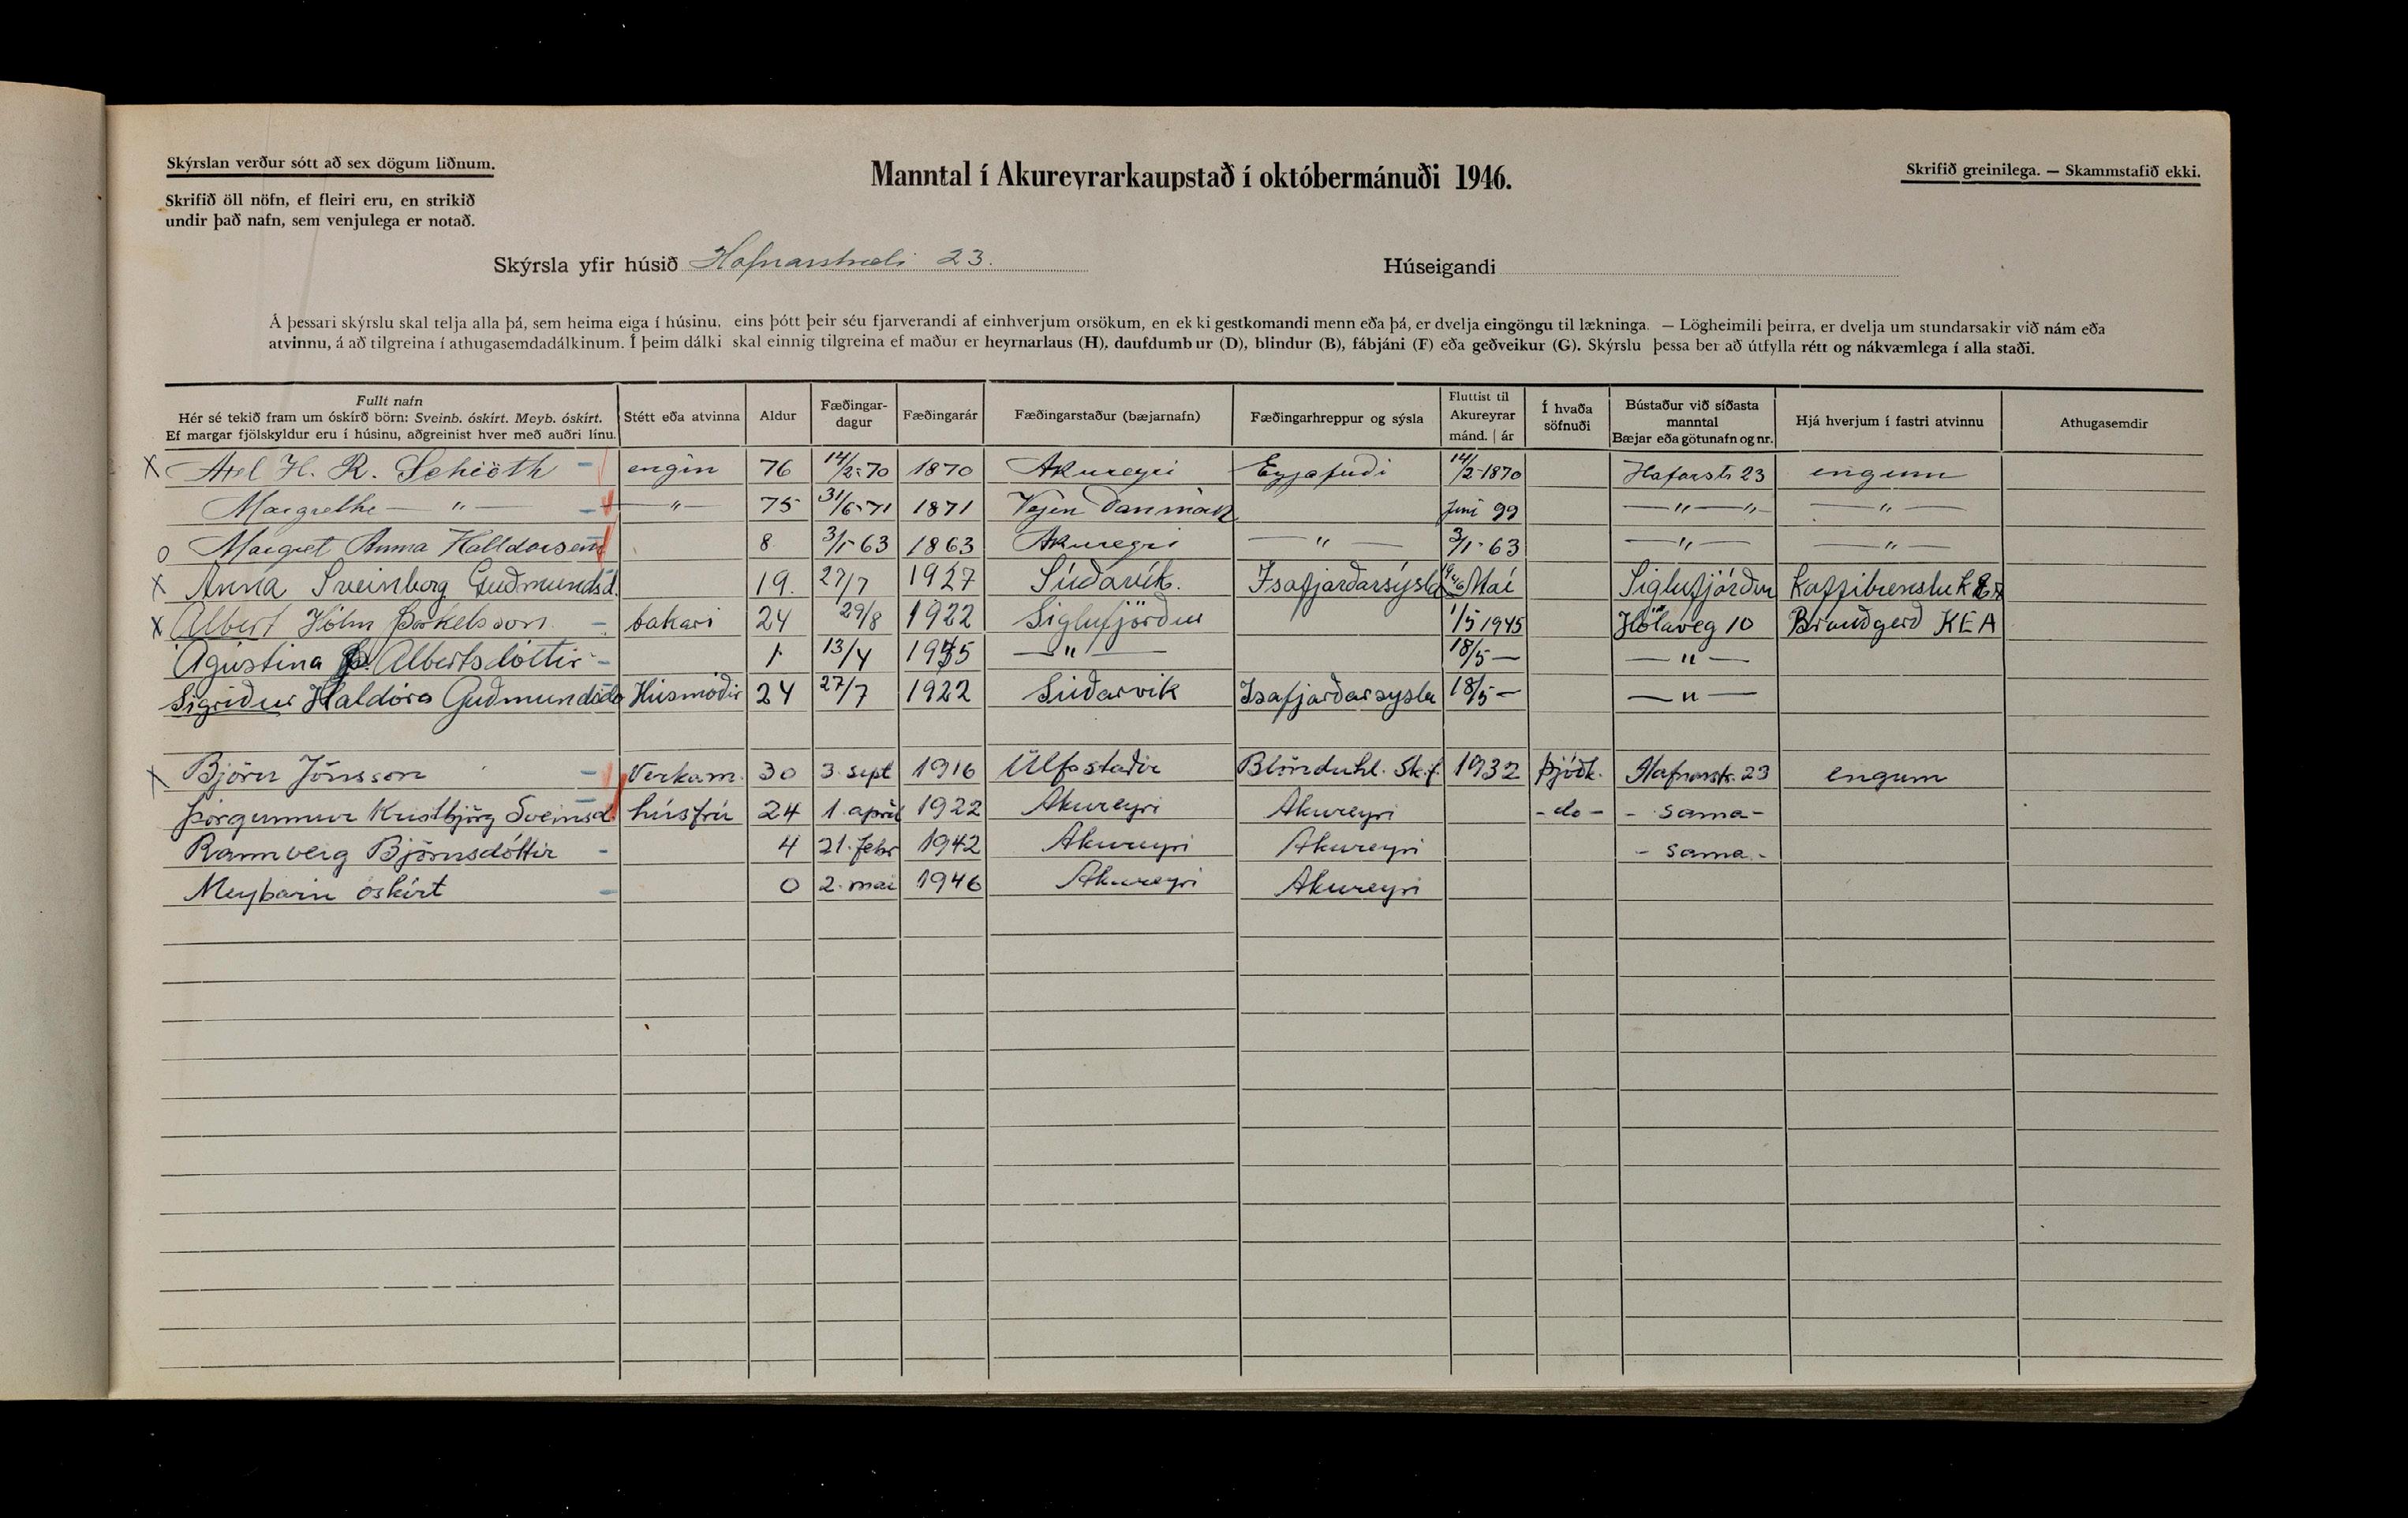 Skýrslan verður sótt að sex dögum liðnum.
Skrifið öll nöfn, ef fleiri eru, en strikið
undir það nafn, sem venjulega er notað.
Manntal í Akureyrarkaupstað í októbermánuði 1946.
Skrifið greinilega. — Skammstafið ekki.
Skýrsla yfir húsið Hafnarstræti 23.
Húseigandi
Á þessari skýrslu skal telja alla þá, sem heima eiga í húsinu, eins þótt þeir séu fjarverandi af einhverjum orsökum, en ekki gestkomandi menn eða þá, er dvelja eingöngu til lækninga. — Lögheimili þeirra, er dvelja um stundarsakir við nám eða
atvinnu, á að tilgreina í athugasemdadálkinum. Í þeim dálki skal einnig tilgreina ef maður er heyrnarlaus (H), daufdumbur (D), blindur (B), fábjáni (F) eða geðveikur (G). Skýrslu þessa ber að útfylla rétt og nákvæmlega í alla staði.
Fullt nafn Hér sé tekið fram um óskírð börn: Sveinb. óskírt. Meyb. óskírt. Ef margar fjölskyldur eru í húsinu, aðgreinist hver með auðri línu. Stétt eða atvinna Aldur Fæðingardagur Fæðingarár Fæðingarstaður (bæjarnafn) Fæðingarhreppur og sýsla Fluttist til Akureyrar mánd. | ár Í hvaða söfnuði Bústaður við síðasta manntal Bæjar eða götunafn og nr. Hjá hverjum í fastri atvinnu Athugasemdir
X Axel H. R. Schiöth – engin 76 14/2-70 1870 Akureyri Eyjafirði 14/2-1870 Hafnarstr 23 engum
Margrethe — " — – — " — 75 31/6-71 1871 Vejen Danmark Juni 99 — " — " — — " —
o Margret Anna Halldorsen 8 3/1-63 1863 Akureyri — " — 3/1-63 — " — — " —
X Anna Sveinborg Guðmundsd. 19. 27/7 1927 Súðavík. Ísafjarðarsýsla Maí Siglufjörður
X Albert Hólm Þorkelsson – bakari 24 29/8 1922 Siglufjörður 1/5 1945 Hólaveg 10 Brauðgerð KEA
Ágústína Albertsdóttir – 1 13/4 1945 — " — 18/5 — — " —
Sigríður Haldóra Guðmundsdo Húsmóðir 24 27/7 1922 Súðarvik Ísafjarðarsysla 18/5 — — " —
X Björn Jónsson – Verkam. 30 3. sept 1916 Úlfsstaðir Blönduhl. Sk.f. 1932 Þjóðk. Hafnarstr. 23 engum
Þórgunnur Kristbjörg Sveinsd. húsfrú 24 1. apríl 1922 Akureyri Akureyri - do - - sama -
Rannveig Björnsdóttir – 4 21. febr 1942 Akureyri Akureyri - sama -
Meybarn óskírt – 0 2. maí 1946 Akureyri Akureyri